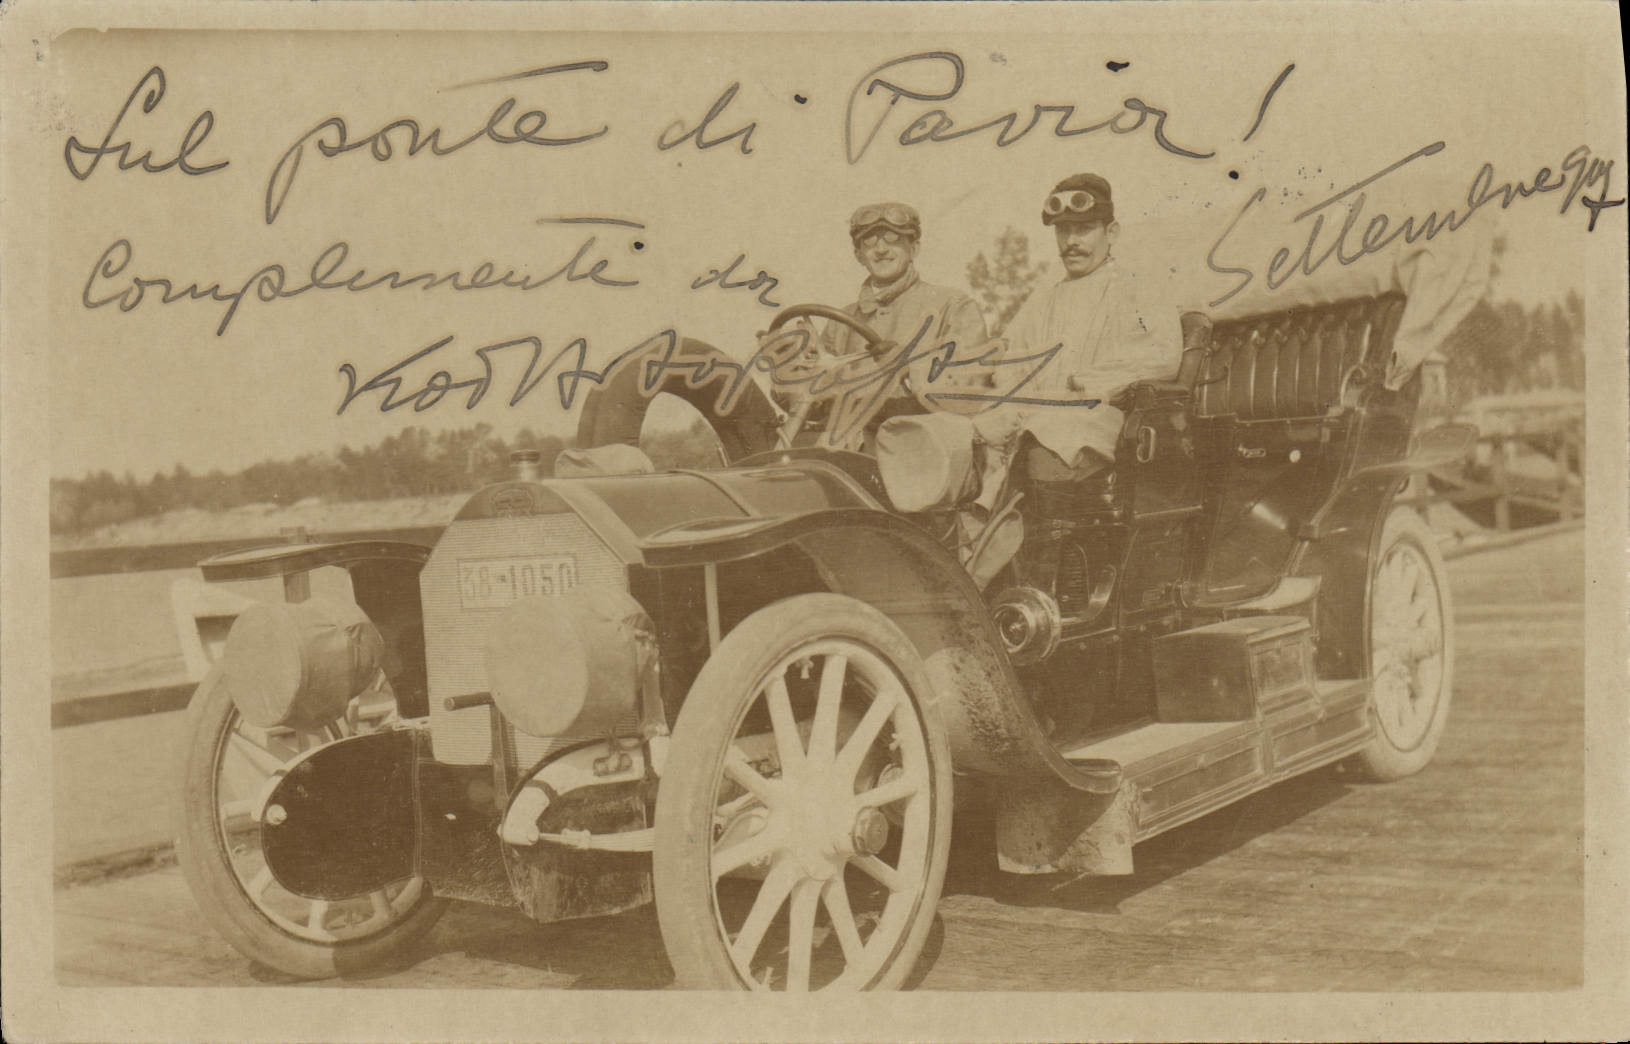 Sul ponte di Pavia!
Settembre
Complimenti da
38-1050